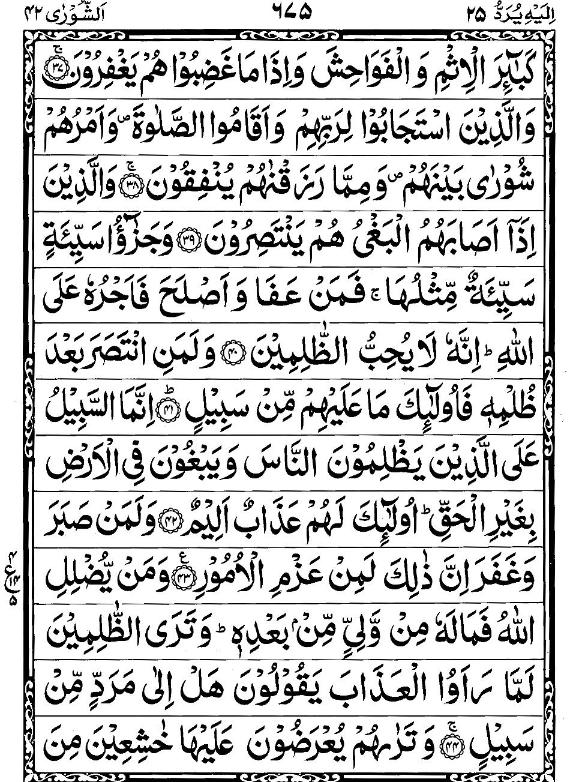 اِلَیْهِ یُرَدُّ ۲۵ ۶۷۵ اَلشُّوْرٰی ۴۲
كَبٰٓئِرَ الْاِثْمِ وَ الْفَوَاحِشَ وَاِذَا مَا غَضِبُوْا هُمْ يَغْفِرُوْنَ ۚ﴿۳۷﴾
وَالَّذِيْنَ اسْتَجَابُوْا لِرَبِّهِمْ وَاَقَامُوا الصَّلٰوةَ ۪ وَاَمْرُهُمْ
شُوْرٰى بَيْنَهُمْ ۪ وَمِمَّا رَزَقْنٰهُمْ يُنْفِقُوْنَ ۚ﴿۳۸﴾ وَالَّذِيْنَ
اِذَاۤ اَصَابَهُمُ الْبَغْىُ هُمْ يَنْتَصِرُوْنَ ﴿۳۹﴾ وَجَزٰٓؤُا سَيِّئَةٍ
سَيِّئَةٌ مِّثْلُهَا ۚ فَمَنْ عَفَا وَ اَصْلَحَ فَاَجْرُهٗ عَلَى
اللّٰهِ ؕ اِنَّهٗ لَا يُحِبُّ الظّٰلِمِيْنَ ﴿۴۰﴾ وَ لَمَنِ انْتَصَرَ بَعْدَ
ظُلْمِهٖ فَاُولٰٓئِكَ مَا عَلَيْهِمْ مِّنْ سَبِيْلٍ ؕ﴿۴۱﴾ اِنَّمَا السَّبِيْلُ
عَلَى الَّذِيْنَ يَظْلِمُوْنَ النَّاسَ وَ يَبْغُوْنَ فِى الْاَرْضِ
بِغَيْرِ الْحَقِّ ؕ اُولٰٓئِكَ لَهُمْ عَذَابٌ اَلِيْمٌ ﴿۴۲﴾ وَلَمَنْ صَبَرَ
وَ غَفَرَ اِنَّ ذٰلِكَ لَمِنْ عَزْمِ الْاُمُوْرِ ﴿۴۳﴾ ع وَمَنْ يُّضْلِلِ
۴ ع ۱۴ ۵
اللّٰهُ فَمَا لَهٗ مِنْ وَّلِىٍّ مِّنْۢ بَعْدِهٖ ؕ وَ تَرَى الظّٰلِمِيْنَ
لَمَّا رَاَوُا الْعَذَابَ يَقُوْلُوْنَ هَلْ اِلٰى مَرَدٍّ مِّنْ
سَبِيْلٍ ۚ﴿۴۴﴾ وَ تَرٰىهُمْ يُعْرَضُوْنَ عَلَيْهَا خٰشِعِيْنَ مِنَ